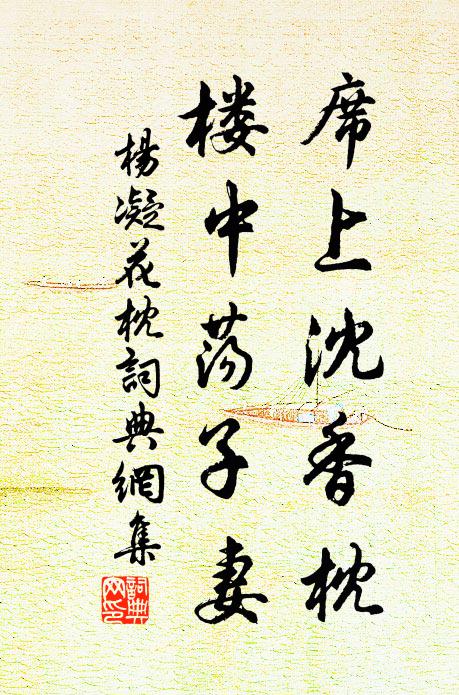 席上沈香枕
楼中荡子妻
楊凝花枕詞典網集
詞典網印